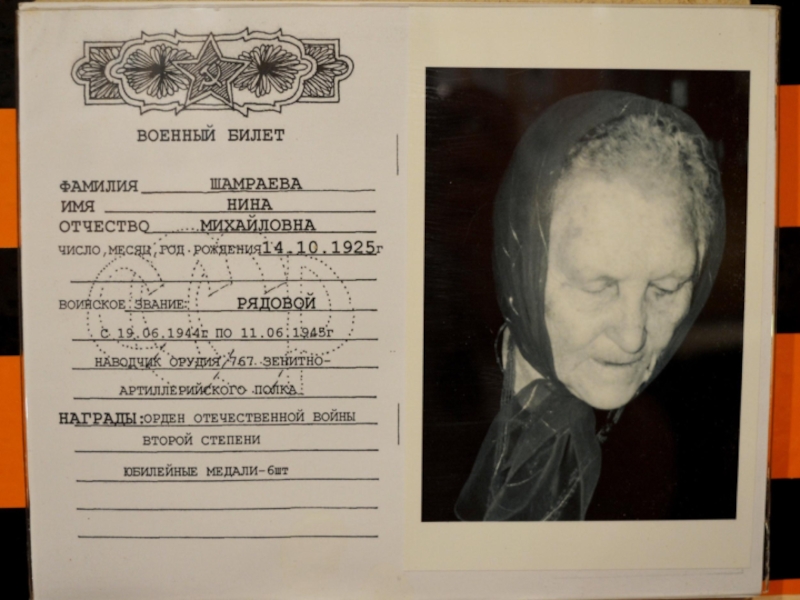 ВОЕННЫЙ БИЛЕТ
ФАМИЛИЯ ШАМРАЕВА
ИМЯ НИНА
ОТЧЕСТВО МИХАЙЛОВНА
ЧИСЛО, МЕСЯЦ, ГОД РОЖДЕНИЯ 14.10.1925г
ВОИНСКОЕ ЗВАНИЕ: РЯДОВОЙ
С 19.06.1944г ПО 11.06.1945г
НАВОДЧИК ОРУДИЯ 767 ЗЕНИТНО-
АРТИЛЛЕРИЙСКОГО ПОЛКА
НАГРАДЫ: ОРДЕН ОТЕЧЕСТВЕННОЙ ВОЙНЫ
ВТОРОЙ СТЕПЕНИ
ЮБИЛЕЙНЫЕ МЕДАЛИ-6шт